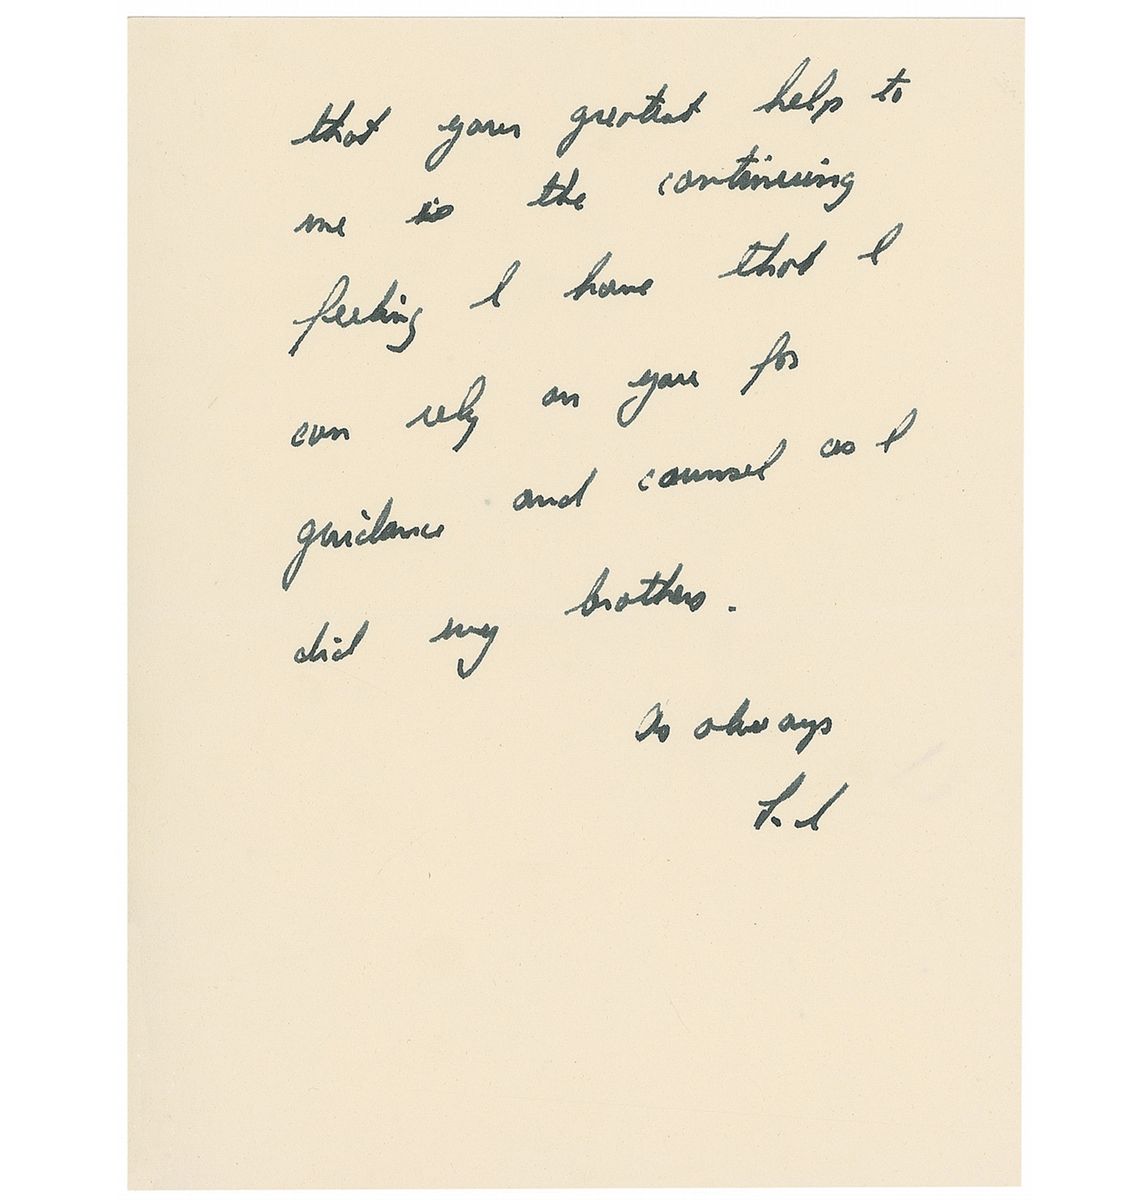 that your greatest help to
me is the continuing
feeling I have that I
can rely on you for
guidance and counsel as I
did my brothers.
As always